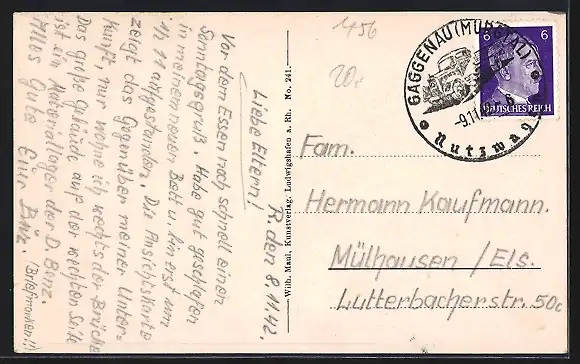 R. den 8.11.42.
Liebe Eltern!
Vor dem Essen noch schnell einen
Sonntagsgruß. Habe gut geschlafen
in meinem neuen Bett u. bin erst um
½ 11 aufgestanden. Die Ansichtskarte
zeigt das Gegenüber meiner Unter-
kunft, nur wohne ich rechts der Brücke
Das große Gebäude auf der rechten Seite
ist ein Materiallager der D. Benz.
Alles Gute Euer
(Briefmarken!!)
Wilh. Maul, Kunstverlag, Ludwigshafen a. Rh. No. 241.
456
20,-
GAGGENAU (MURGTAL)
-9.11.
Nutzwag
6 6
DEUTSCHES REICH
Fam.
Hermann Kaufmann.
Mülhausen / Els.
Lutterbacherstr. 50c